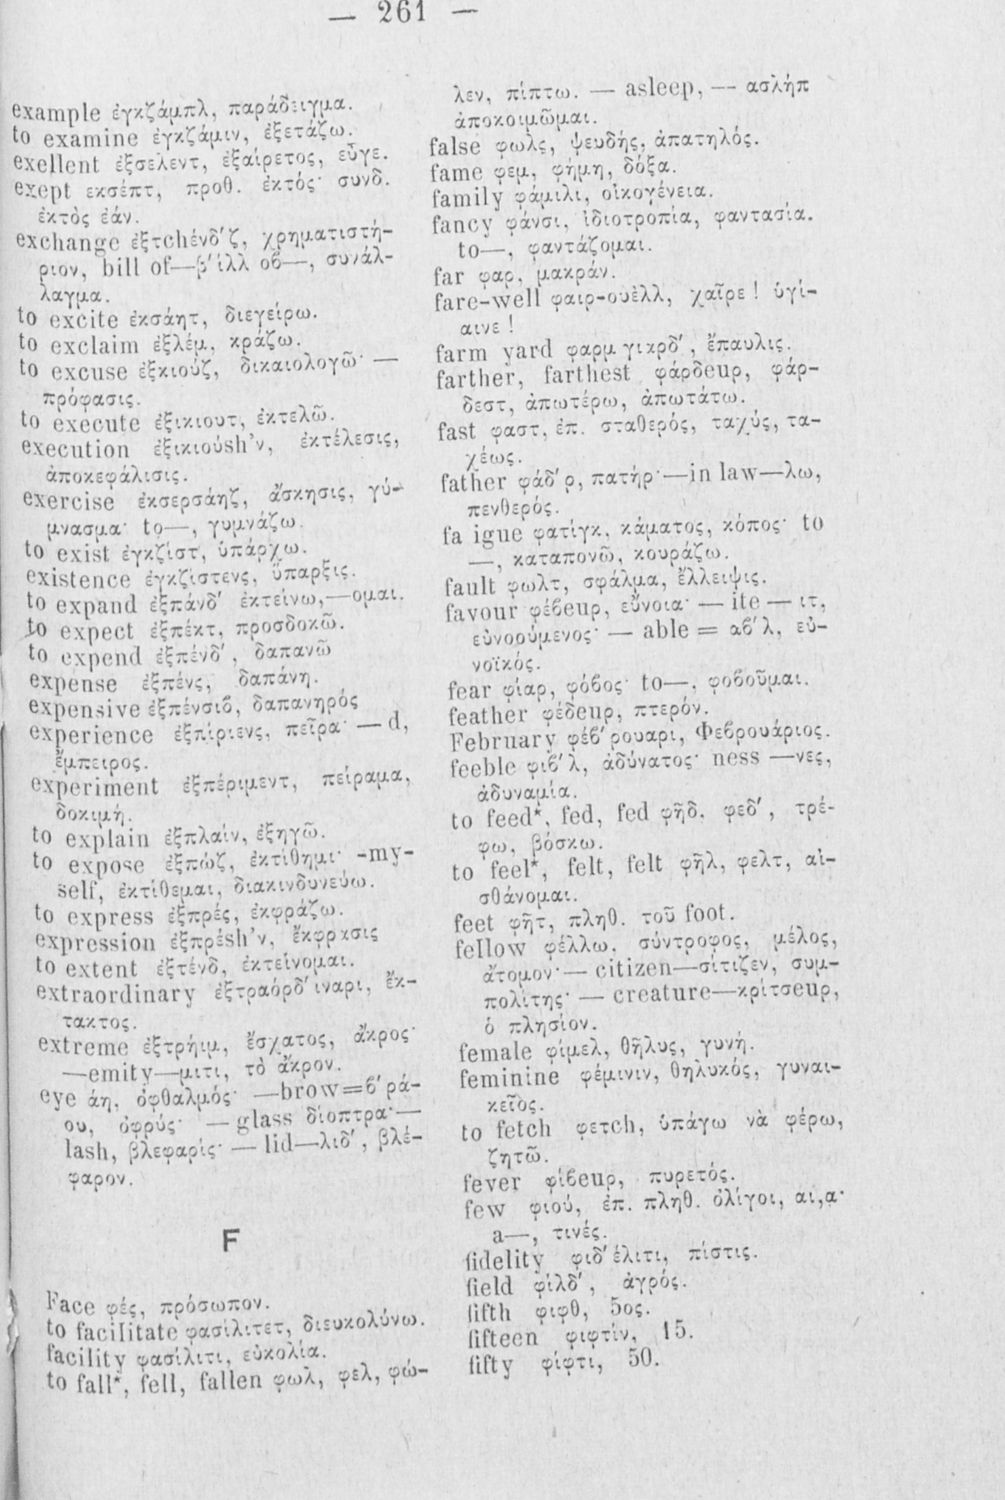 — 261 —
example ἐγκζάμπλ, παράδειγμα.
to examine ἐγκζάμιν, ἐξετάζω.
exellent ἐξσελεντ, ἐξαίρετος, εὖγε.
exept εκσέπτ, προθ. ἐκτός· συνδ.
ἐκτὸς ἐάν.
exchange ἐξτchένδ΄ζ, χρηματιστή-
ριον, bill of—β΄ίλλ οϐ—, συνάλ-
λαγμα.
to excite ἐκσάητ, διεγείρω.
to exclaim ἐξλέμ, κράζω.
to excuse ἐξκιούζ, δικαιολογῶ· —
πρόφασις.
to execute ἐξικιουτ, ἐκτελῶ.
execution ἐξικιούsh'ν, ἐκτέλεσις,
ἀποκεφάλισις.
exercise ἐκσερσάηζ, ἄσκησις, γύ-
μνασμα· to—, γυμνάζω.
to exist ἐγκζίστ, ὑπάρχω.
existence ἐγκζίστενς, ὕπαρξις.
to expand ἐξπάνδ΄ ἐκτείνω,—ομαι.
to expect ἐξπέκτ, προσδοκῶ.
to expend ἐξπένδ΄, δαπανῶ
expense ἐξπένς, δαπάνη.
expensive ἐξπένσιϐ, δαπανηρός
experience ἐξπίριενς, πεῖρα· — d,
ἔμπειρος.
experiment ἐξπέριμεντ, πείραμα,
δοκιμή.
to explain ἐξπλαίν, ἐξηγῶ.
to expose ἐξπώζ, ἐκτίθημι· -my-
self, ἐκτίθεμαι, διακινδυνεύω.
to express ἐξπρές, ἐκφράζω.
expression ἐξπρέsh'ν, ἔκφρασις
to extent ἐξτένδ, ἐκτείνομαι.
extraordinary ἐξτραόρδ΄ιναρι, ἔκ-
τακτος.
extreme ἐξτρήιμ, ἔσχατος, ἄκρος·
—emity—μιτι, τὸ ἄκρον.
eye άη, ὀφθαλμός· —brow=ϐ΄ρά-
ου, ὀφρύς· — glass δίοπτρα·—
lash, βλεφαρίς· — lid—λιδ΄, βλέ-
φαρον.
F
Face φές, πρόσωπον.
to facilitate φασίλιτετ, διευκολύνω.
facility φασίλιτι, εὐκολία.
to fall*, fell, fallen φωλ, φελ, φώ-
λεν, πίπτω. — asleep, — ασλήπ
ἀποκοιμῶμαι.
false φωλς, ψευδής, ἀπατηλός.
fame φεμ, φήμη, δόξα.
family φάμιλι, οἰκογένεια.
fancy φάνσι, ἰδιοτροπία, φαντασία.
to—, φαντάζομαι.
far φαρ, μακράν.
fare-well φαιρ-ουέλλ, χαῖρε ! ὑγί-
αινε !
farm yard φαρμ γιαρδ΄, ἔπαυλις.
farther, farthest φάρδeuρ, φάρ-
δεστ, ἀπωτέρω, ἀπωτάτω.
fast φαστ, ἐπ. σταθερός, ταχύς, τα-
χέως.
father φάδ΄ρ, πατήρ·—in law—λω,
πενθερός.
fa igue φατίγκ, κάματος, κόπος· to
—, καταπονῶ, κουράζω.
fault φωλτ, σφάλμα, ἔλλειψις.
favour φέϐeuρ, εὔνοια· — ite — ιτ,
εὐνοούμενος· — able = αϐ΄λ, εὐ-
νοϊκός.
fear φίαρ, φόϐος· to—, φοϐοῦμαι.
feather φέδeuρ, πτερόν.
February φέϐ΄ρουαρι, Φεϐρουάριος.
feeble φιϐ΄λ, ἀδύνατος· ness —νες,
ἀδυναμία.
to feed*, fed, fed φῆδ, φεδ΄, τρέ-
φω, βόσκω.
to feel*, felt, felt φῆλ, φελτ, αἰ-
σθάνομαι.
feet φῆτ, πληθ. τοῦ foot.
fellow φέλλω, σύντροφος, μέλος,
ἄτομον·— citizen—σίτιζεν, συμ-
πολίτης· — creature—κρίτσeuρ,
ὁ πλησίον.
female φίμελ, θῆλυς, γυνή.
feminine φέμινιν, θηλυκός, γυναι-
κεῖος.
to fetch φετch, ὑπάγω νὰ φέρω,
ζητῶ.
fever φίϐeuρ, πυρετός.
few φιού, ἐπ. πληθ. ὀλίγοι, αι,α·
a—, τινές.
fidelity φιδ΄έλιτι, πίστις.
field φίλδ΄, ἀγρός.
fifth φιφθ, 5ος.
fifteen φιφτίν, 15.
fifty φίφτι, 50.